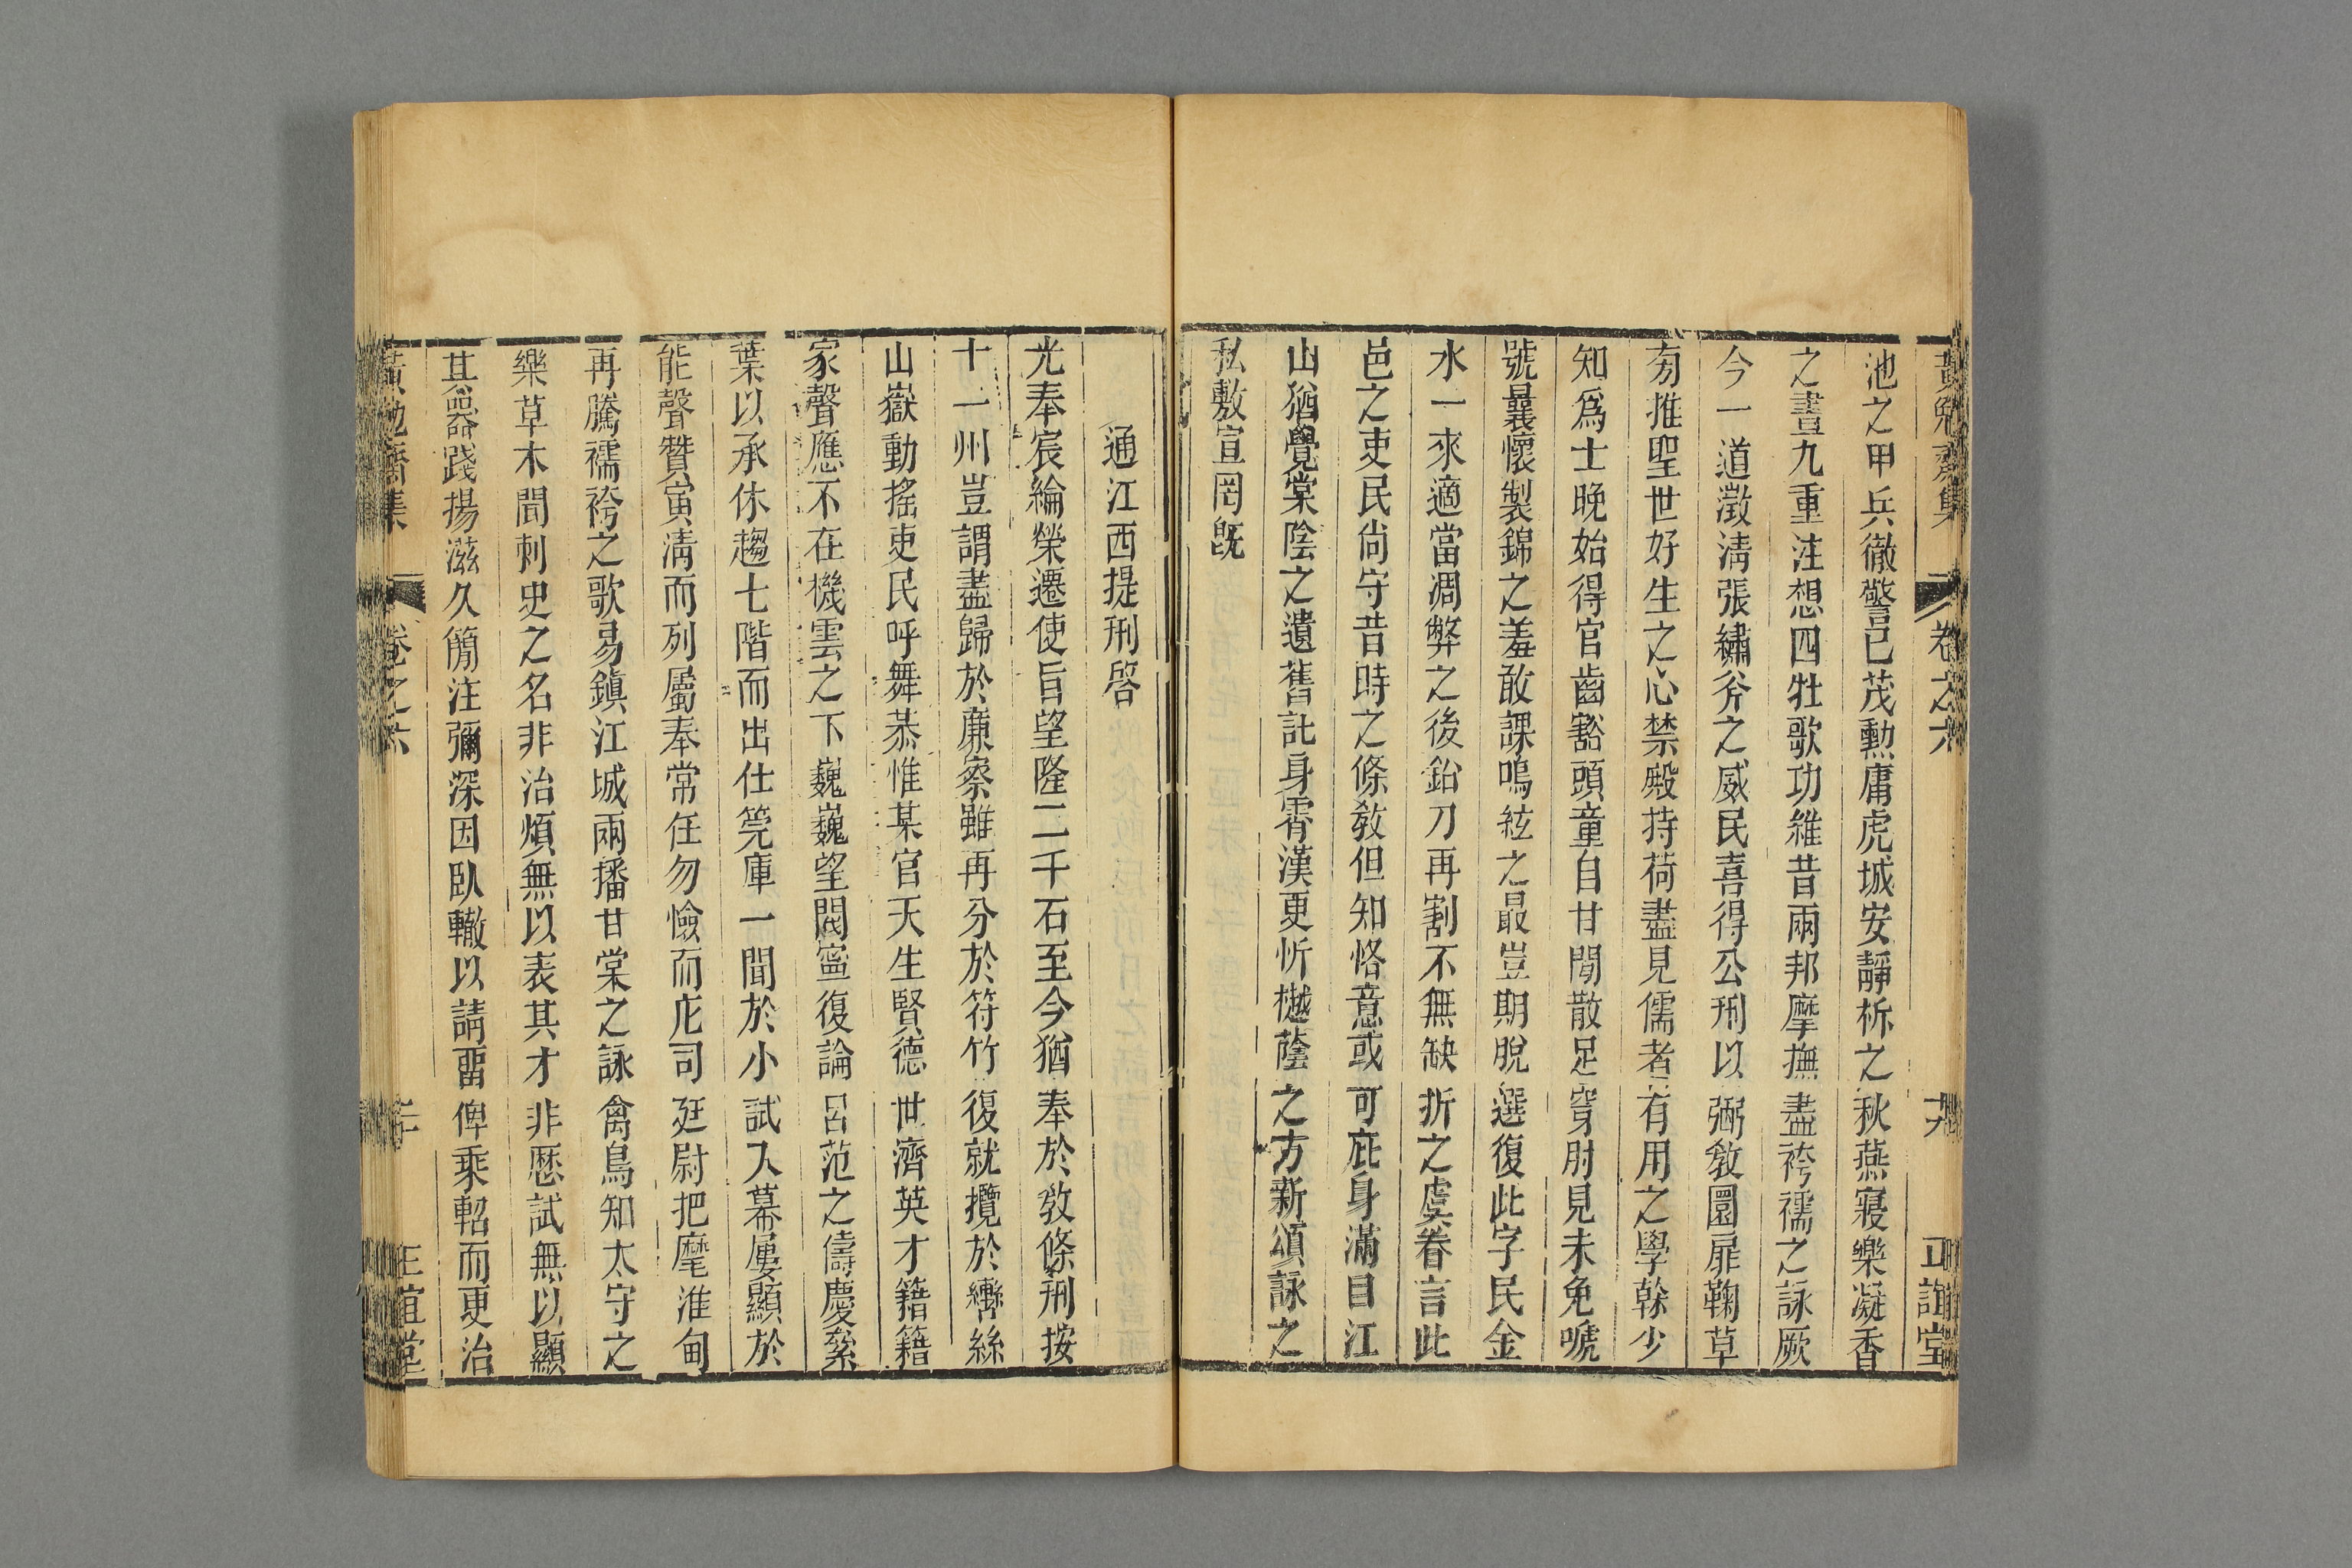 黃勉齋集 卷之六 十九 正誼堂
池之甲兵徹警已茂勳庸虎城安靜柝之秋燕寢樂凝香
之晝九重注想四牡歌功雖昔兩邦摩撫盡袴襦之詠厥
今一道澂淸張繡斧之威民喜得公刑以弼敎圜扉鞠草
夯推聖世好生之心禁殿持荷盡見儒者有用之學榦少
知爲士晚始得官齒豁頭童自甘閒散足穿肘見未免嗁
號曩懷製錦之羞敢課鳴絃之最豈期脫選復此字民金
水一來適當凋弊之後鉛刀再割不無缺折之虞眷言此
邑之吏民尙守昔時之條敎但知恪意或可庇身滿目江
山猶覺棠陰之遺舊託身霄漢更忻樾蔭之方新頌詠之
私敷宣罔旣
通江西提刑啓
光奉宸綸榮遷使旨望隆二千石至今猶奉於敎條刑按
十一州豈謂盡歸於廉察雖再分於符竹復就攬於轡絲
山嶽動搖吏民呼舞恭惟某官天生賢德世濟英才籍籍
家聲應不在機雲之下巍巍望閥寧復論呂范之儔慶絫
葉以承休趨七階而出仕筦庫一聞於小試入幕屢顯於
能聲贊寅淸而列屬奉常任勿憸而庀司廷尉把麾淮甸
再騰襦袴之歌易鎭江城兩播甘棠之詠禽鳥知太守之
樂草木聞刺史之名非治煩無以表其才非歷試無以顯
其器踐揚滋久簡注彌深因臥轍以請畱俾乘軺而更治
黃勉齋集 卷之六 二十 正誼堂